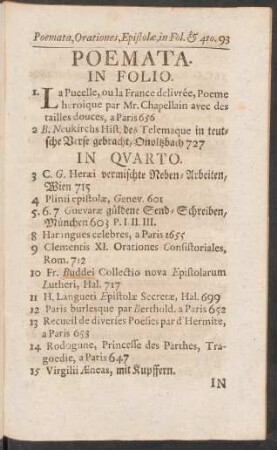 Poemata, Orationes, Epistolæ, in Fol. & 4to. 93
POEMATA.
IN FOLIO.
1. La Pucelle, ou la France delivrée, Poeme
heroique par Mr. Chapellain avec des
tailles douces, a Paris 656
2 B. Neukirchs Hist. des Telemaque in teut-
sche Verse gebracht, Onoltzbach 727
IN QVARTO.
3 C. G. Heræi vermischte Neben-Arbeiten,
Wien 715
4 Plinii epistolæ, Genev. 601
5. 6. 7 Guevaræ güldene Send-Schreiben,
München 603 P. I. II. III.
8 Harangues celebres, a Paris 1655
9 Clementis XI. Orationes Consistoriales,
Rom. 712
10 Fr. Buddei Collectio nova Epistolarum
Lutheri, Hal. 717
11 H. Langueti Epistolæ Secretæ, Hal. 699
12 Paris burlesque par Berthold. a Paris 652
13 Recueil de diverses Poesies par d'Hermite,
a Paris 653
14 Rodogune, Princesse des Parthes, Tra-
goedie, a Paris 647
15 Virgilii Æneas, mit Kupffern.
IN